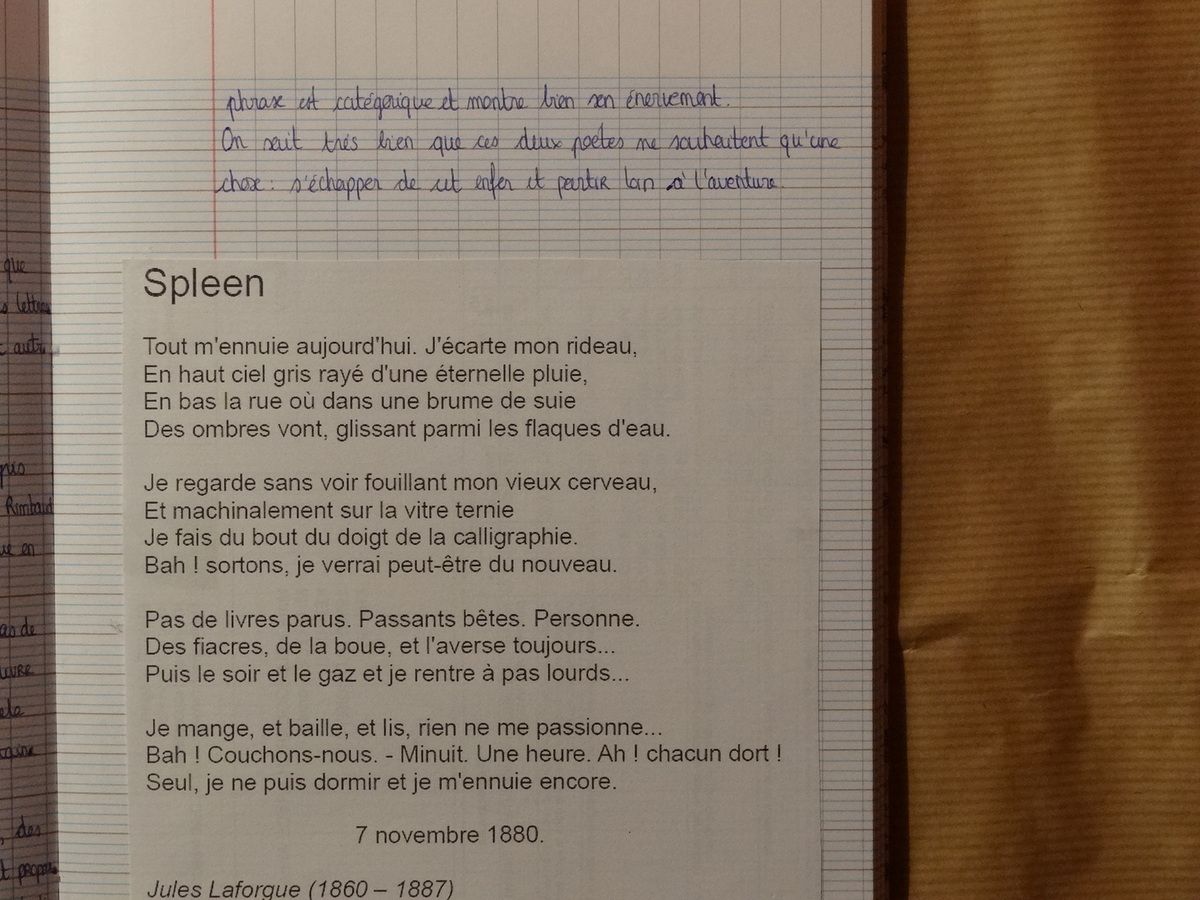 que
lettres
autr
Rimbaud
en
de
des
phrase est catégorique et montre bien son énervement.
On sait très bien que ces deux poètes ne souhaitent qu'une
chose : s'échapper de cet enfer et partir loin à l'aventure.
Spleen
Tout m'ennuie aujourd'hui. J'écarte mon rideau,
En haut ciel gris rayé d'une éternelle pluie,
En bas la rue où dans une brume de suie
Des ombres vont, glissant parmi les flaques d'eau.
Je regarde sans voir fouillant mon vieux cerveau,
Et machinalement sur la vitre ternie
Je fais du bout du doigt de la calligraphie.
Bah ! sortons, je verrai peut-être du nouveau.
Pas de livres parus. Passants bêtes. Personne.
Des fiacres, de la boue, et l'averse toujours...
Puis le soir et le gaz et je rentre à pas lourds...
Je mange, et baille, et lis, rien ne me passionne...
Bah ! Couchons-nous. - Minuit. Une heure. Ah ! chacun dort !
Seul, je ne puis dormir et je m'ennuie encore.
7 novembre 1880.
Jules Laforgue (1860 – 1887)